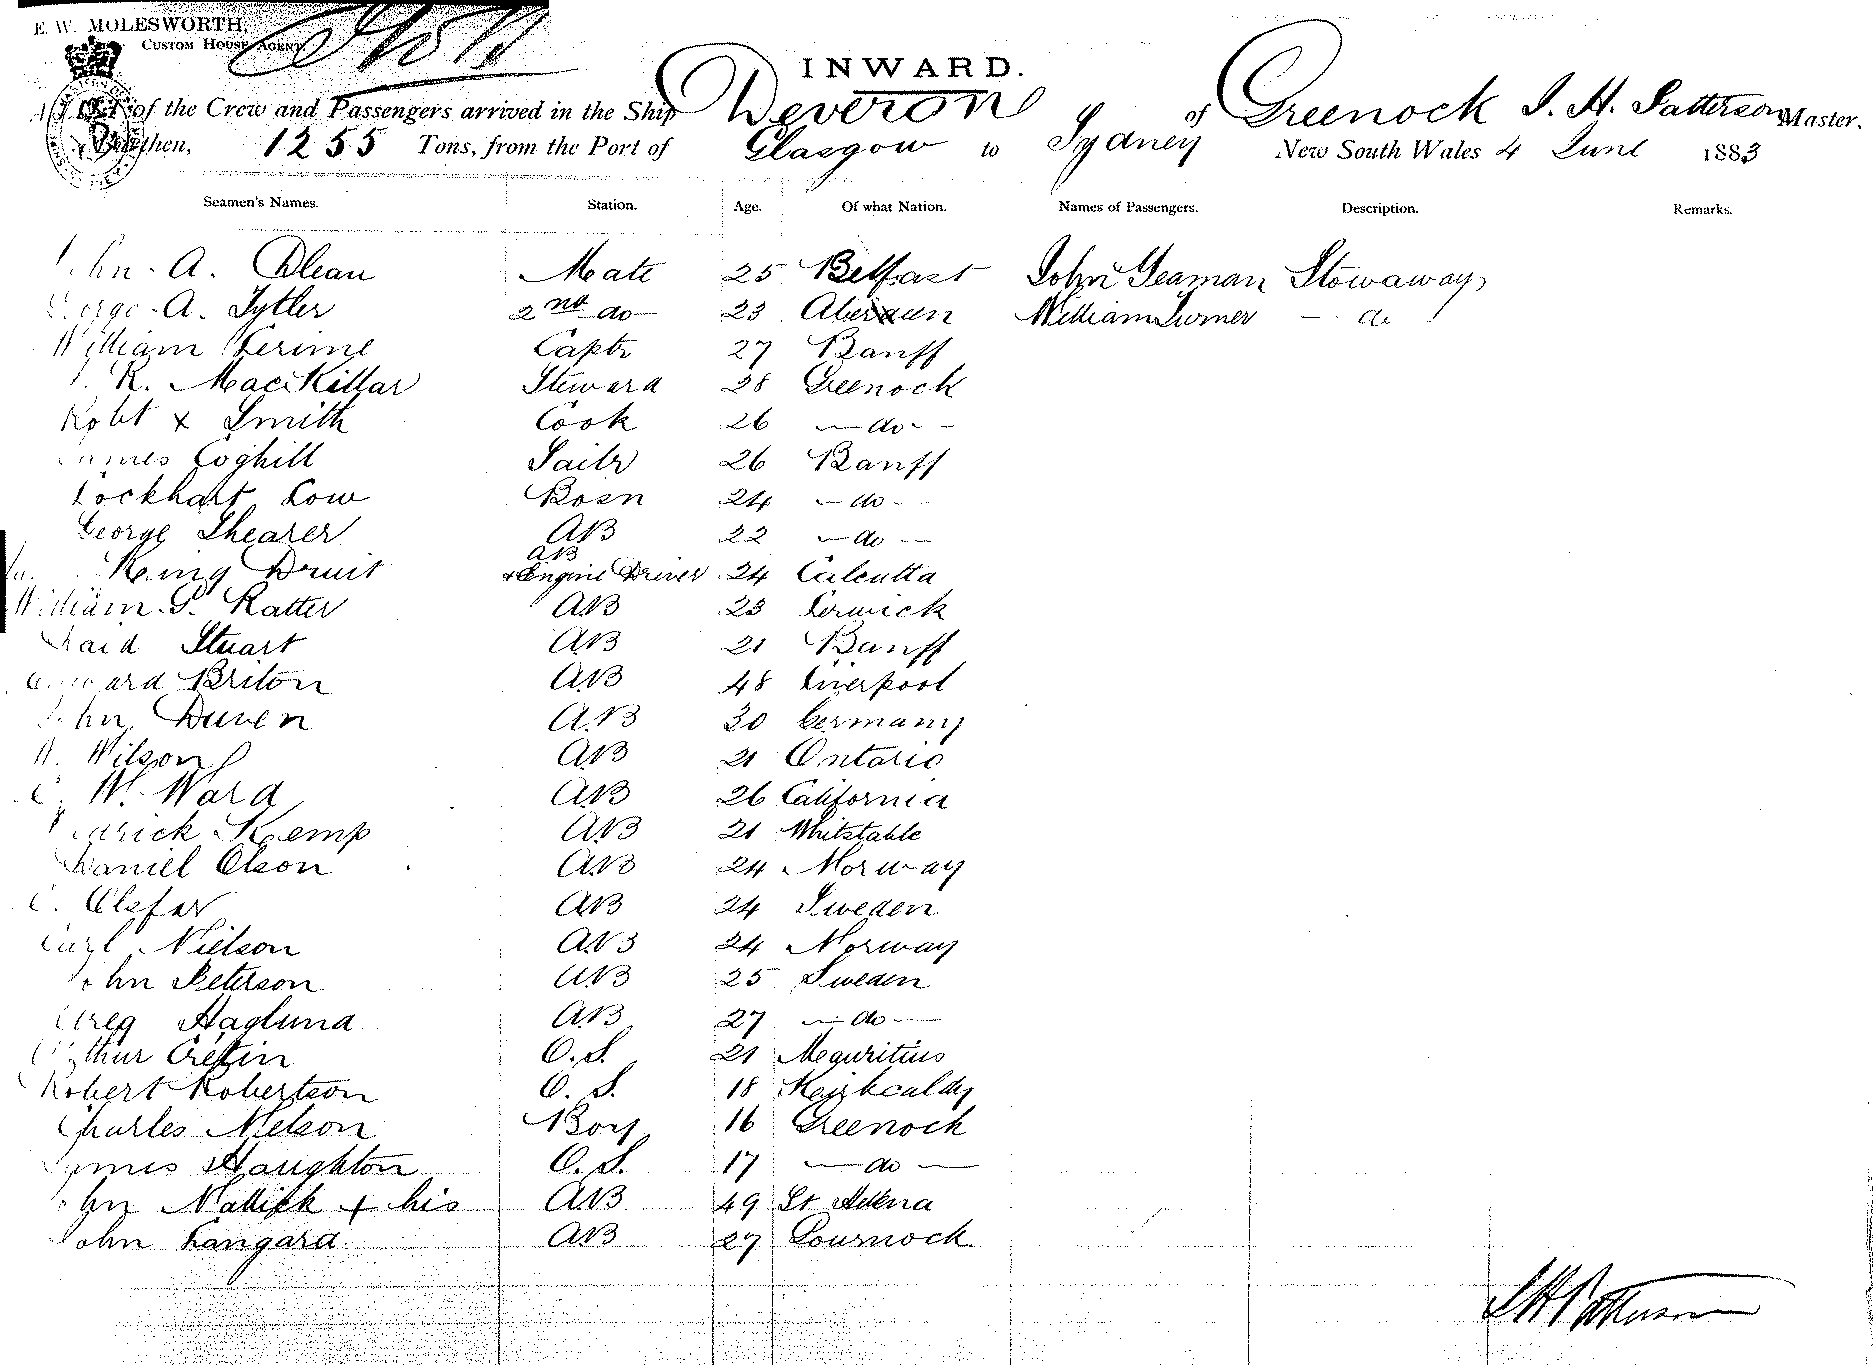 E. W. MOLESWORTH,
CUSTOM HOUSE AGENT
INWARD.
A LIST of the Crew and Passengers arrived in the Ship Deveron of Greenock J. H. Patterson Master.
Burthen, 1255 Tons, from the Port of Glasgow to Sydney New South Wales 4 June 1883
Seamen's Names. Station. Age. Of what Nation. Names of Passengers. Description. Remarks.
John A. Mate 25 Belfast John Yeaman Stowaway
George A. Tytler 2nd do 23 Aberdeen William Turner - do
William Captr 27 Banff
R. MacKillar Steward 28 Greenock
Robt x Smith Cook 26 - do -
James Coghill Sailr 26 Banff
Lockhart Low Bosn 24 - do -
George Shearer AB 22 - do -
King Druit AB & Engine Driver 24 Calcutta
William P. Ratter AB 23 Lerwick
David Stuart AB 21 Banff
Edward Briton AB 48 Liverpool
John Duven AB 30 Germany
W. Wilson AB 21 Ontario
C. W. Ward AB 26 California
Kemp AB 21 Whitstable
Daniel Olson AB 24 Norway
C. Olefar AB 24 Sweden
Carl Nielson AB 24 Norway
John Peterson AB 25 Sweden
Haglund AB 27 - do -
Arthur Crefin O.S. 21 Meauritius
Robert Robertson O.S. 18 Keirkcaldy
Charles Nelson Boy 16 Greenock
James Haughton O.S. 17 - do -
John + his AB 49 St Helena
John Langard AB 27 Gournock
J H Patterson